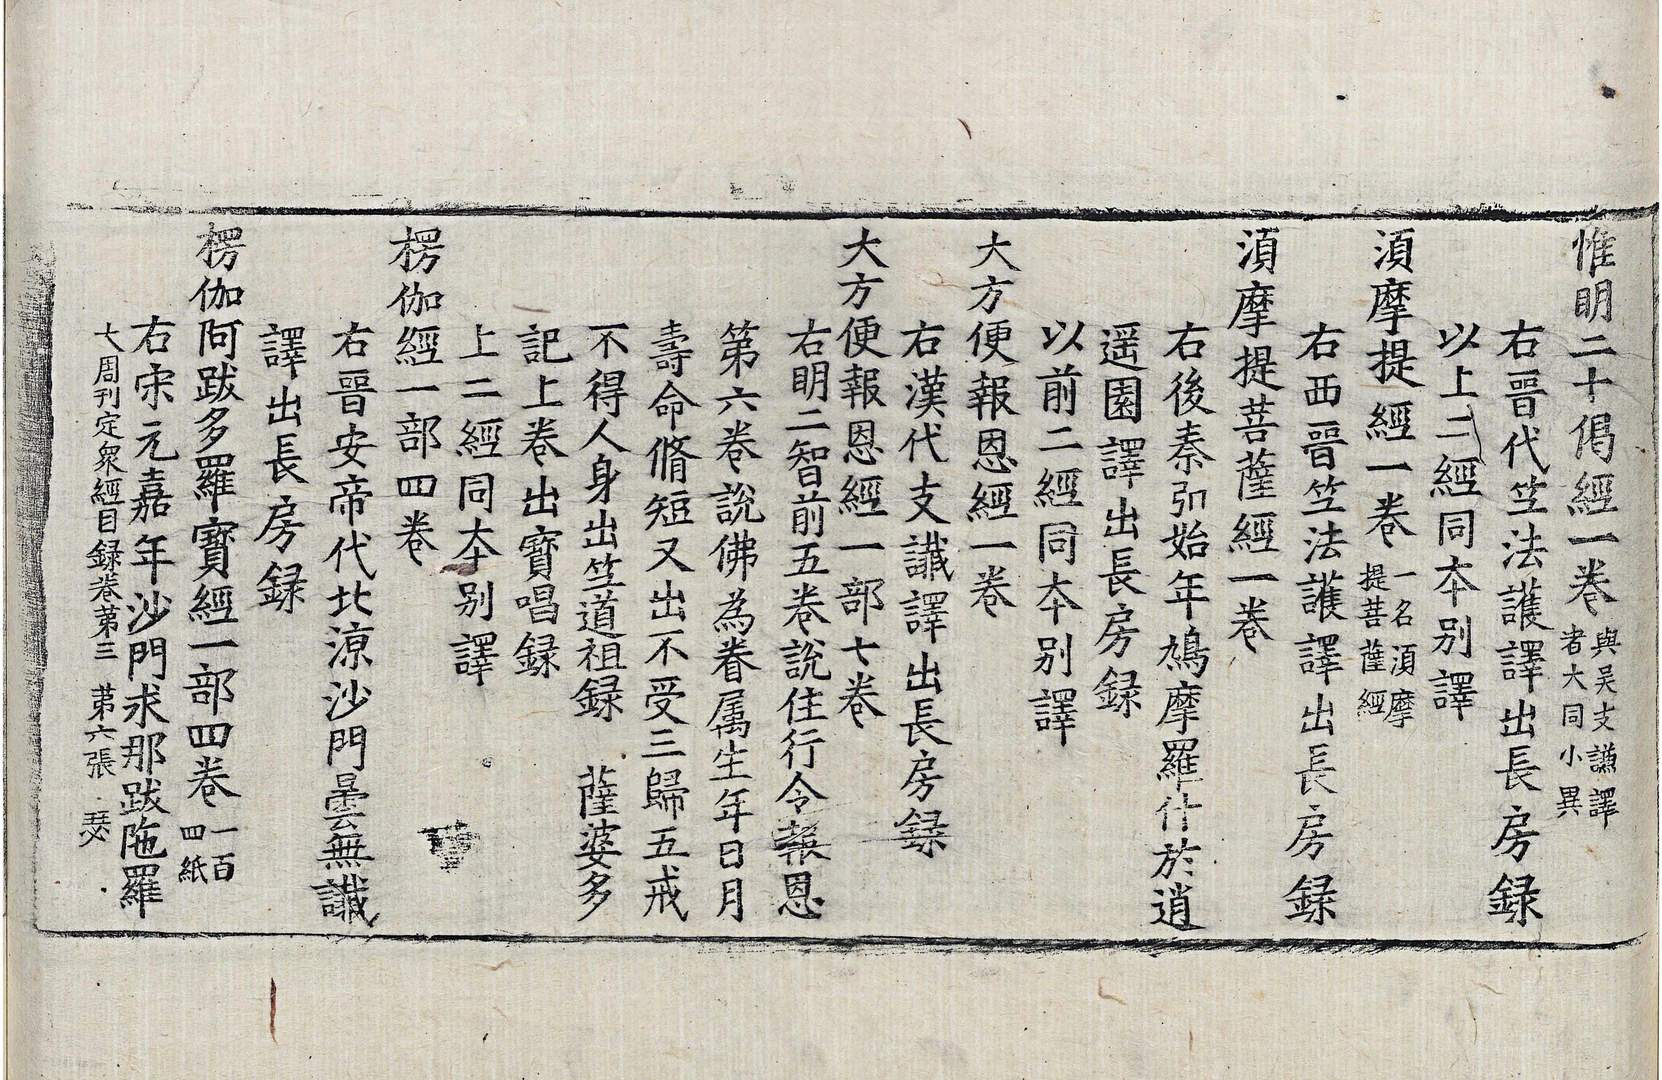 惟明二十偈經一卷 與吴支謙譯者大同小異
右晉代竺法護譯出長房録
以上二經同本別譯
湏摩提經一卷 一名湏摩提菩薩經
右西晉竺法護譯出長房録
湏摩提菩薩經一卷
右後秦弘始年鳩摩羅什於逍
遥園譯出長房録
以前二經同本別譯
大方便報恩經一卷
右漢代支讖譯出長房録
大方便報恩經一部七卷
右明二智前五卷說住行令報恩
第六卷說佛為眷属生年日月
壽命脩短又出不受三歸五戒
不得人身出竺道祖録 薩婆多
記上卷出寶唱録
上二經同本別譯
楞伽經一部四卷
右晉安帝代北涼沙門曇無讖
譯出長房録
楞伽阿跋多羅寶經一部四卷 一百四紙
右宋元嘉年沙門求那跋陁羅
大周刊定衆經目録卷苐三 苐六張 瑟